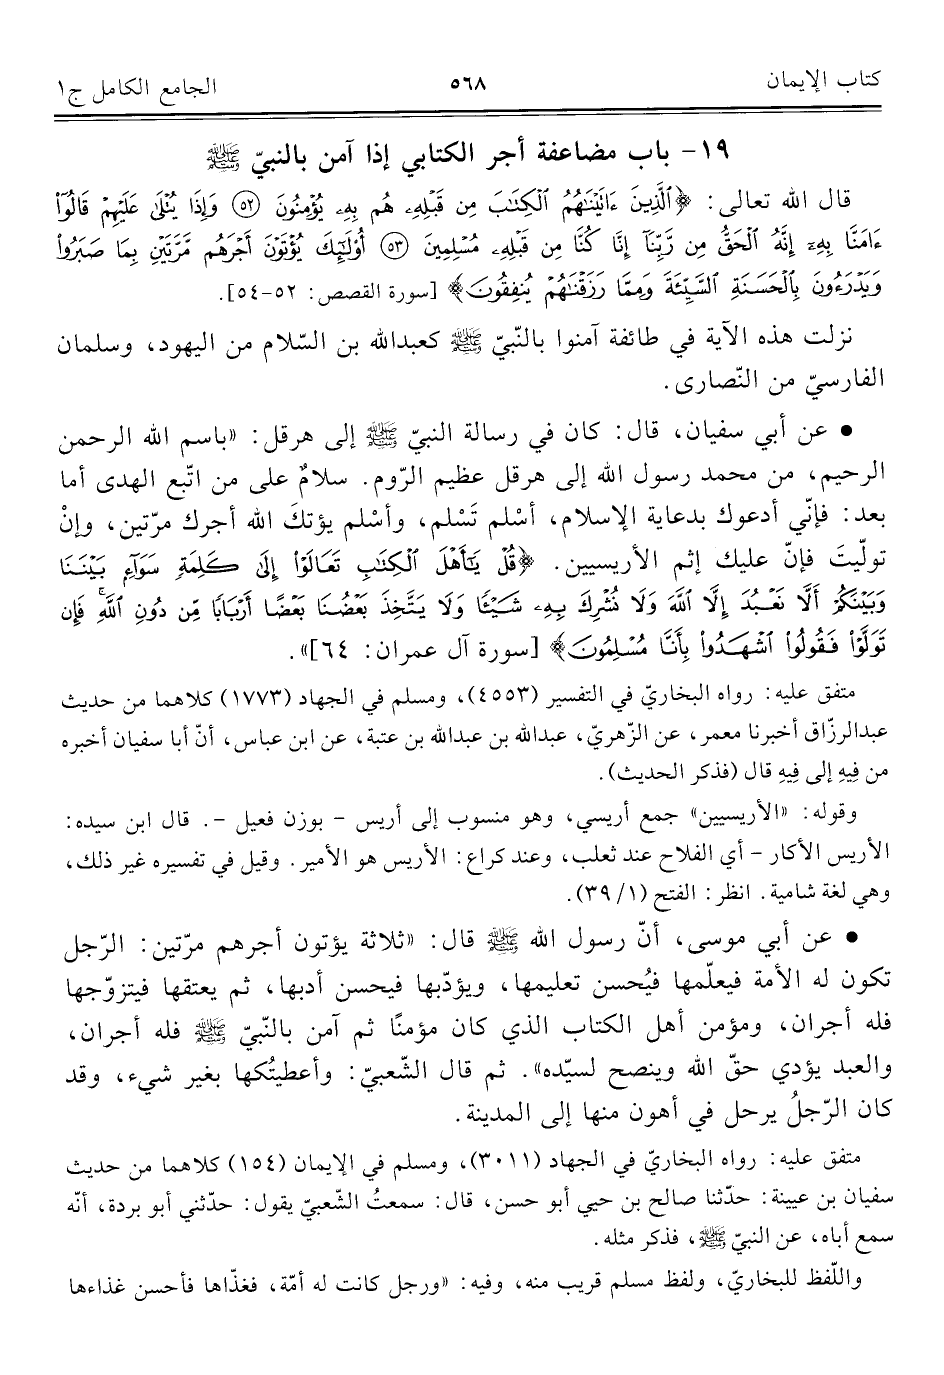 كتاب الإيمان ٥٦٨ الجامع الكامل ج١
١٩- باب مضاعفة أجر الكتابي إذا آمن بالنبيّ ﷺ
قال الله تعالى: ﴿ٱلَّذِينَ ءَاتَيْنَٰهُمُ ٱلْكِتَٰبَ مِن قَبْلِهِۦ هُم بِهِۦ يُؤْمِنُونَ ٥٢ وَإِذَا يُتْلَىٰ عَلَيْهِمْ قَالُوٓا۟
ءَامَنَّا بِهِۦٓ إِنَّهُ ٱلْحَقُّ مِن رَّبِّنَآ إِنَّا كُنَّا مِن قَبْلِهِۦ مُسْلِمِينَ ٥٣ أُو۟لَٰٓئِكَ يُؤْتَوْنَ أَجْرَهُم مَّرَّتَيْنِ بِمَا صَبَرُوا۟
وَيَدْرَءُونَ بِٱلْحَسَنَةِ ٱلسَّيِّئَةَ وَمِمَّا رَزَقْنَٰهُمْ يُنفِقُونَ﴾ [سورة القصص: ٥٢-٥٤].
نزلت هذه الآية في طائفة آمنوا بالنّبيّ ﷺ كعبدالله بن السّلام من اليهود، وسلمان
الفارسيّ من النّصارى.
• عن أبي سفيان، قال: كان في رسالة النبيّ ﷺ إلى هرقل: «باسم الله الرحمن
الرحيم، من محمد رسول الله إلى هرقل عظيم الرّوم. سلامٌ على من اتّبع الهدى أما
بعد: فإنّي أدعوك بدعاية الإسلام، أسْلم تَسْلم، وأسْلم يؤتكَ الله أجرك مرّتين، وإنْ
تولّيتَ فإنّ عليك إثم الأريسيين. ﴿قُلْ يَٰٓأَهْلَ ٱلْكِتَٰبِ تَعَالَوْا۟ إِلَىٰ كَلِمَةٍ سَوَآءٍ بَيْنَنَا
وَبَيْنَكُمْ أَلَّا نَعْبُدَ إِلَّا ٱللَّهَ وَلَا نُشْرِكَ بِهِۦ شَيْـًٔا وَلَا يَتَّخِذَ بَعْضُنَا بَعْضًا أَرْبَابًا مِّن دُونِ ٱللَّهِ ۚ فَإِن
تَوَلَّوْا۟ فَقُولُوا۟ ٱشْهَدُوا۟ بِأَنَّا مُسْلِمُونَ﴾ [سورة آل عمران: ٦٤]».
متفق عليه: رواه البخاريّ في التفسير (٤٥٥٣)، ومسلم في الجهاد (١٧٧٣) كلاهما من حديث
عبدالرزّاق أخبرنا معمر، عن الزّهريّ، عبدالله بن عبدالله بن عتبة، عن ابن عباس، أنّ أبا سفيان أخبره
من فِيهِ إلى فِيهِ قال (فذكر الحديث).
وقوله: «الأريسيين» جمع أريسي، وهو منسوب إلى أريس - بوزن فعيل -. قال ابن سيده:
الأريس الأكار - أي الفلاح عند ثعلب، وعند كراع: الأريس هو الأمير. وقيل في تفسيره غير ذلك،
وهي لغة شامية. انظر: الفتح (١/ ٣٩).
• عن أبي موسى، أنّ رسول الله ﷺ قال: «ثلاثة يؤتون أجرهم مرّتين: الرّجل
تكون له الأمة فيعلّمها فيُحسن تعليمها، ويؤدّبها فيحسن أدبها، ثم يعتقها فيتزوّجها
فله أجران، ومؤمن أهل الكتاب الذي كان مؤمنًا ثم آمن بالنّبيّ ﷺ فله أجران،
والعبد يؤدي حقّ الله وينصح لسيّده». ثم قال الشّعبيّ: وأعطيتُكها بغير شيء، وقد
كان الرّجلُ يرحل في أهون منها إلى المدينة.
متفق عليه: رواه البخاريّ في الجهاد (٣٠١١)، ومسلم في الإيمان (١٥٤) كلاهما من حديث
سفيان بن عيينة: حدّثنا صالح بن حيي أبو حسن، قال: سمعتُ الشّعبيّ يقول: حدّثني أبو بردة، أنّه
سمع أباه، عن النبيّ ﷺ، فذكر مثله.
واللّفظ للبخاريّ، ولفظ مسلم قريب منه، وفيه: «ورجل كانت له أمّة، فغذّاها فأحسن غذاءها